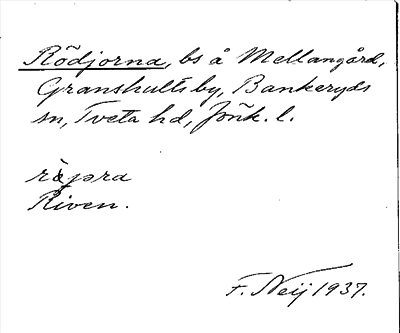 Rödjorna, bs å Mellangård,
Granshults by, Bankeryds
sn, Tveta hd, Jönk. l.
Riven.
F. Neij 1937.